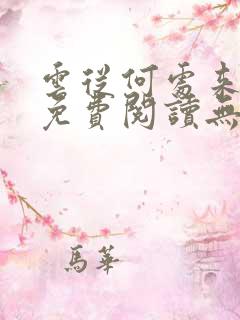 雲從何處來
免費閱讀無
馬華